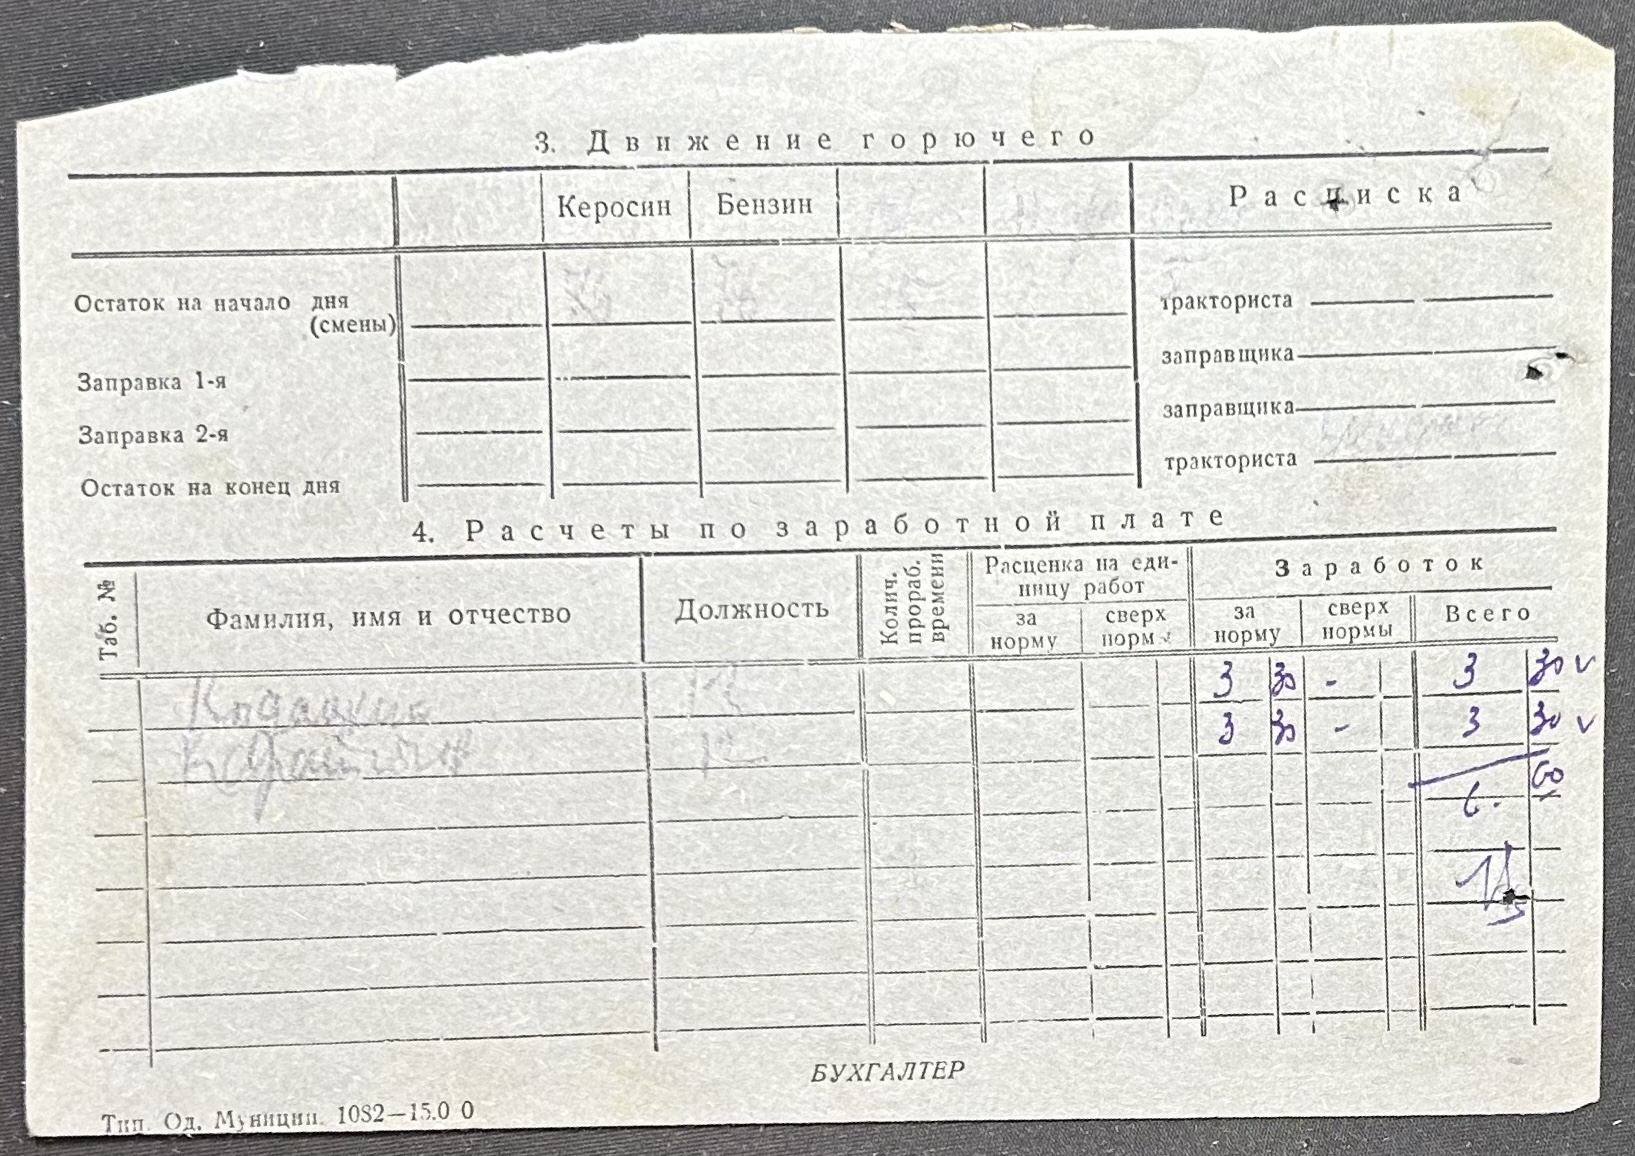 3. Движение горючего
Керосин Бензин Расписка
Остаток на начало дня (смены) тракториста
Заправка 1-я заправщика
Заправка 2-я заправщика
Остаток на конец дня тракториста
4. Расчеты по заработной плате
Таб. № Фамилия, имя и отчество Должность Колич. прораб. времени Расценка на единицу работ Заработок
за норму сверх норм за норму сверх нормы Всего
3 30 - 3 30 v
3 30 - 3 30 v
6. 60
БУХГАЛТЕР
Тип. Од. Муницип. 1082—15.0 0